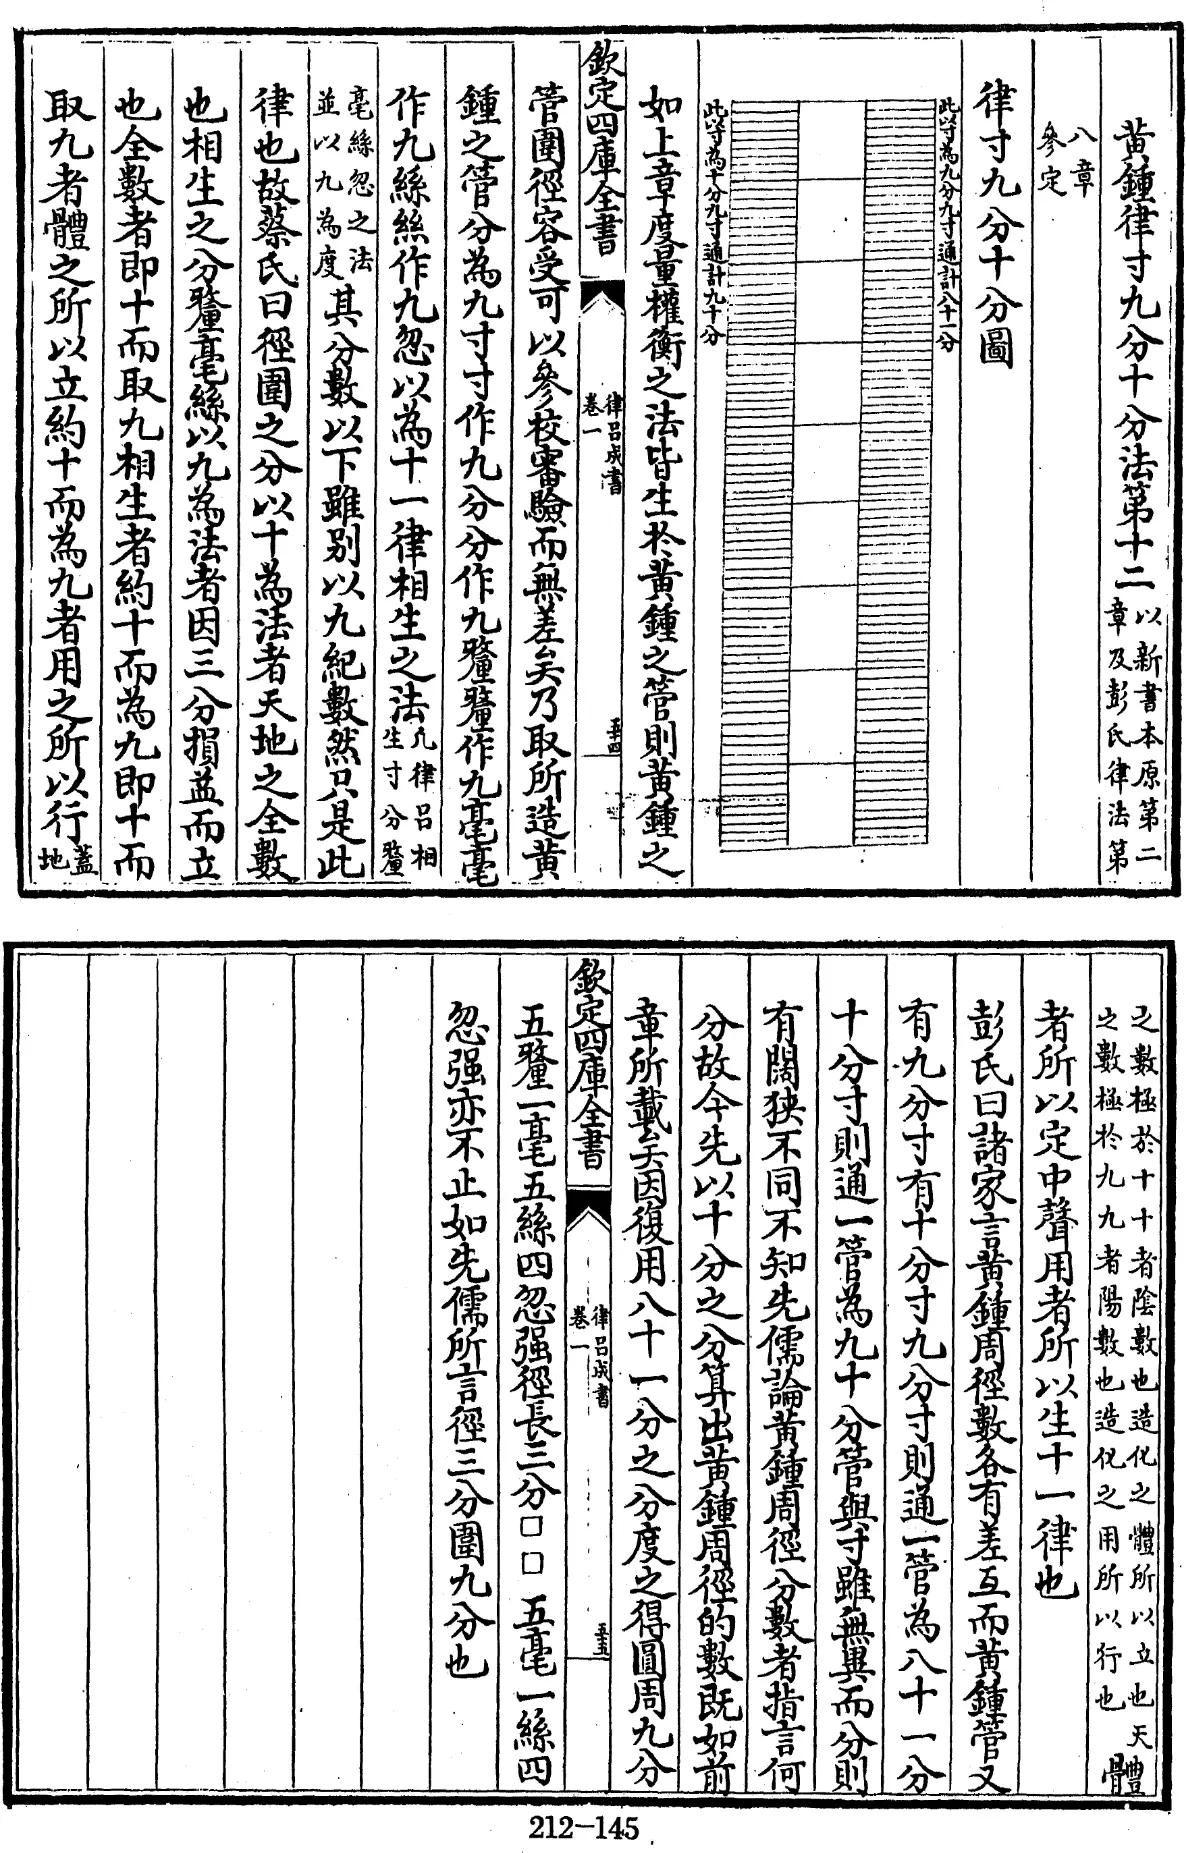 黃鍾律寸九分十分法第十二以新書本原第二
章及彭氏律法第
八章
參定
律寸九分十分圖
此以寸為九分九寸通計八十一分
此以寸為十分九寸通計九十分
如上章度量權衡之法皆生於黃鍾之管則黃鍾之
欽定四庫全書
律呂成書
卷一
五十四
管圍徑容受可以參校審驗而無差矣乃取所造黃
鍾之管分為九寸寸作九分分作九釐釐作九毫毫
作九絲絲作九忽以為十一律相生之法凡律呂相
生寸分釐
毫絲忽之法
並以九為度其分數以下雖別以九紀數然只是此
律也故蔡氏曰徑圍之分以十為法者天地之全數
也相生之分釐毫絲以九為法者因三分損益而立
也全數者即十而取九相生者約十而為九即十而
取九者體之所以立約十而為九者用之所以行蓋
地
之數極於十十者陰數也造化之體所以立也天
之數極於九九者陽數也造化之用所以行也體
者所以定中聲用者所以生十一律也
彭氏曰諸家言黃鍾周徑數各有差互而黃鍾管又
有九分寸有十分寸九分寸則通一管為八十一分
十分寸則通一管為九十分管與寸雖無異而分則
有闊狹不同不知先儒論黃鍾周徑分數者指言何
分故今先以十分之分算出黃鍾周徑的數既如前
章所載矣因復用八十一分之分度之得圓周九分
欽定四庫全書
律呂成書
卷一
五十五
五釐一毫五絲四忽强徑長三分□□五毫一絲四
忽强亦不止如先儒所言徑三分圍九分也
212-145